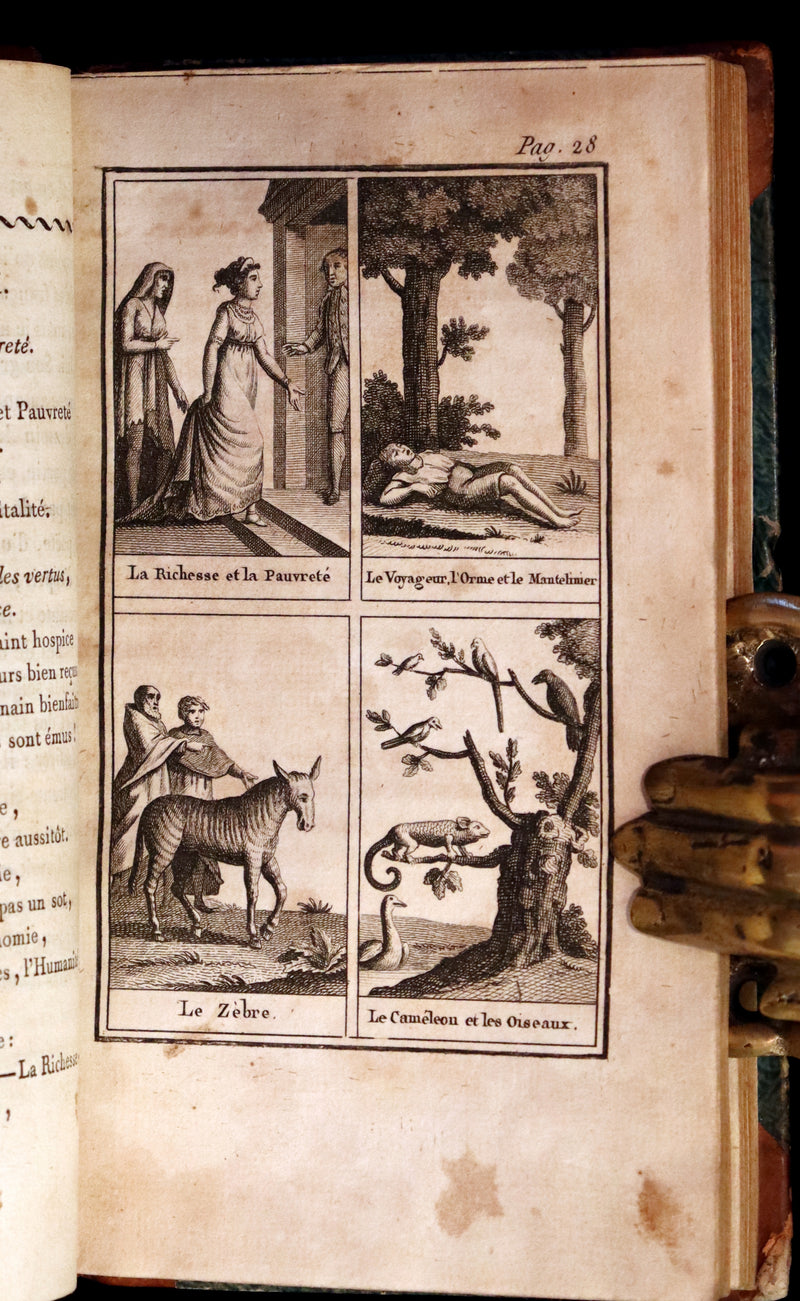 reté.
et Pauvreté
italité;
les vertus,
ce.
aint hospice
urs bien reçus
nain bienfaits
sont émus!
e,
e aussitôt.
ie,
pas un sot,
nomie,
s, l'Humanité
e:
—La Richesse
,
Pag. 28
La Richesse et la Pauvreté
Le Voyageur, l'Orme et le Mantelinier
Le Zèbre.
Le Caméleon et les Oiseaux.